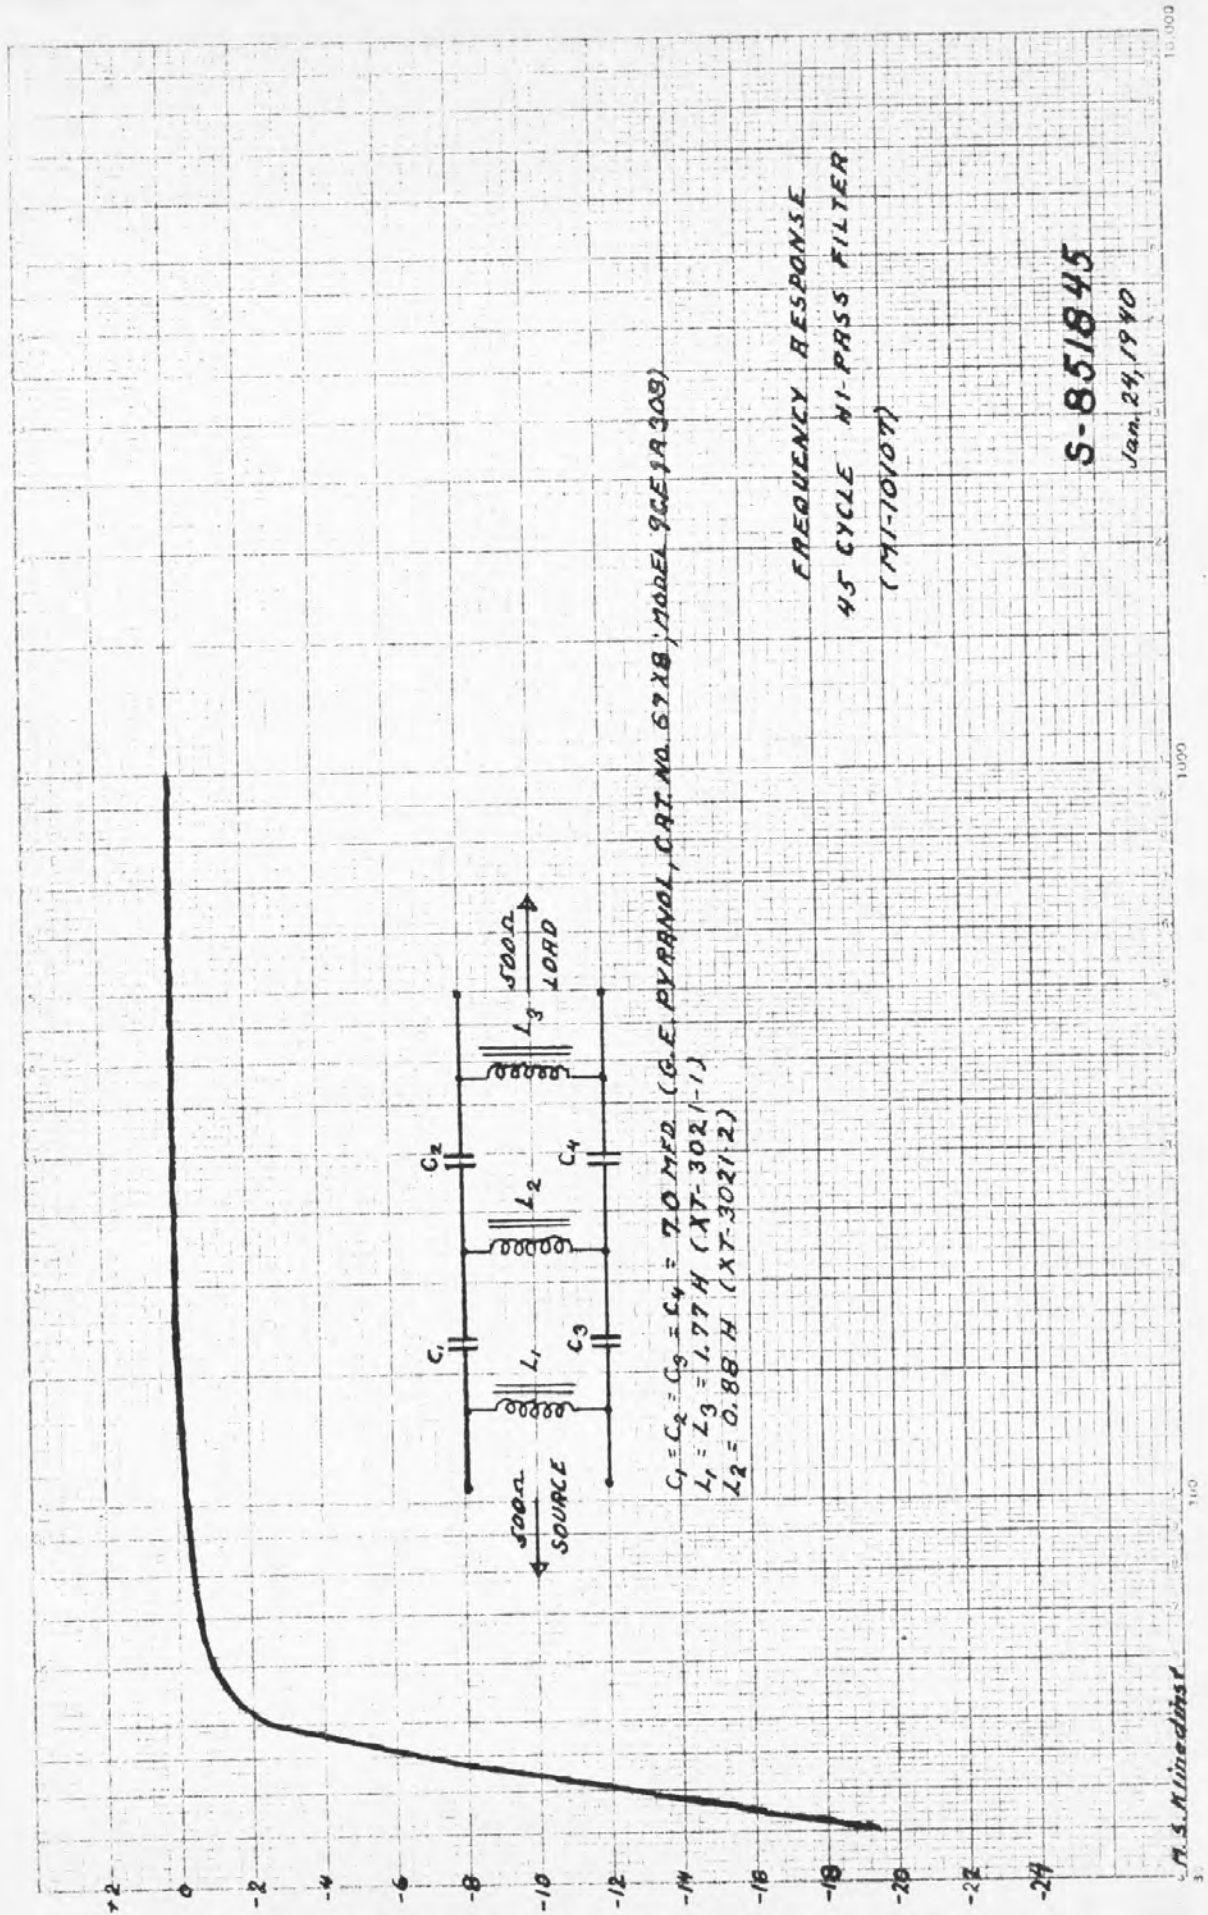 +2
0
-2
-4
-6
-8
-10
-12
-14
-16
-18
-20
-22
-24
C₁
C₂
L₁
L₂
L₃
C₃
C₄
500Ω
SOURCE
500Ω
LOAD
C₁ = C₂ = C₃ = C₄ = 7.0 MFD (G.E. PYRANOL, CAT. NO. 67X8; MODEL 9CE1A308)
L₁ = L₃ = 1.77 H (XT-3021-1)
L₂ = 0.88 H (XT-3021-2)
FREQUENCY RESPONSE
45 CYCLE HI-PASS FILTER
(MI-10107)
S-851845
Jan. 24, 1940
M.S. Klinedinst
100
1000
10,000